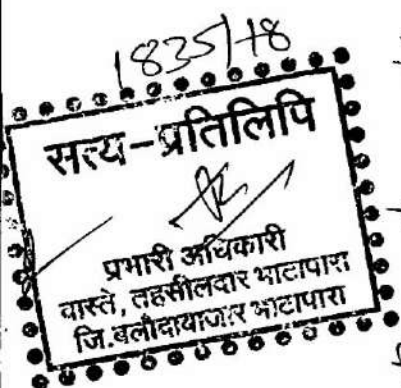 1835/18
सत्य-प्रतिलिपि
प्रभारी अधिकारी
वास्ते, तहसीलदार भाटापारा
जि.बलौदाबाजार भाटापारा